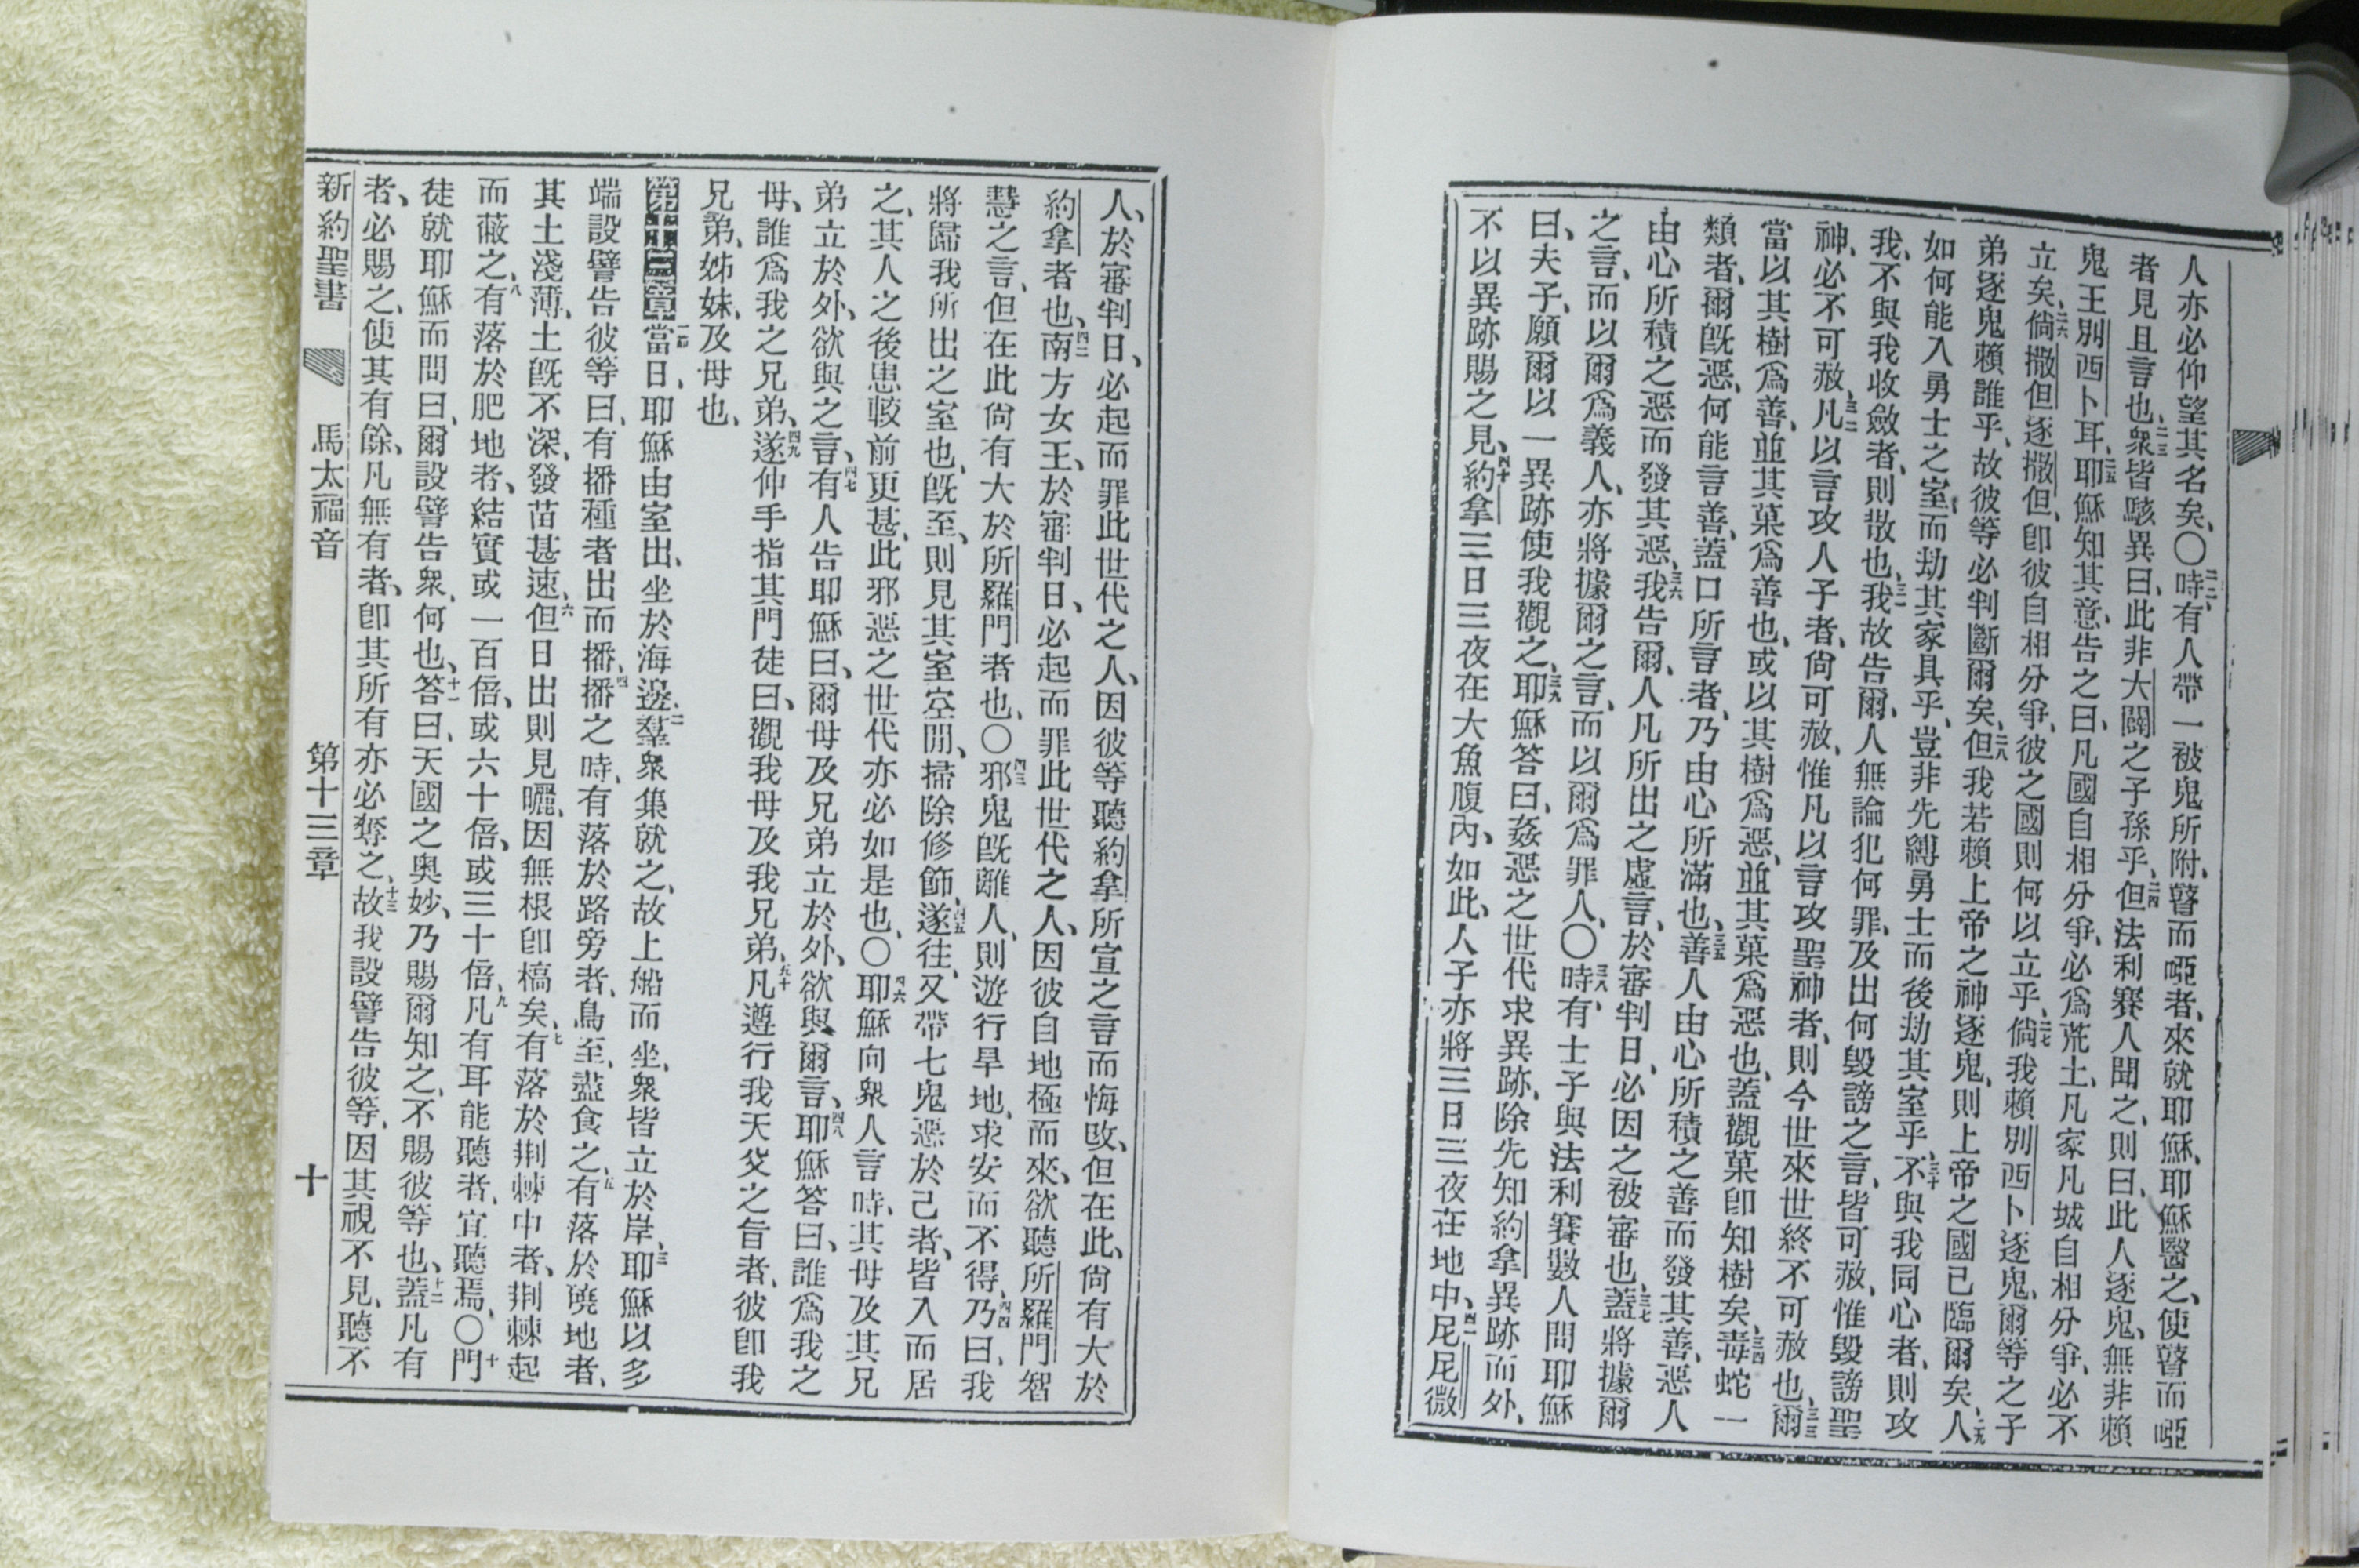 人亦必仰望其名矣、〇二二時有人帶一被鬼所附、瞽而啞者、來就耶穌、耶穌醫之、使瞽而啞
者見且言也、二三衆皆駭異曰、此非大闢之子孫乎、二四但法利賽人聞之、則曰、此人逐鬼、無非賴
鬼王別西卜耳、二五耶穌知其意、告之曰、凡國自相分爭、必爲荒土、凡家凡城自相分爭、必不
立矣、二六倘撒但逐撒但、卽彼自相分爭、彼之國則何以立乎、二七倘我賴別西卜逐鬼、爾等之子
弟逐鬼賴誰乎、故彼等必判斷爾矣、二八但我若賴上帝之神逐鬼、則上帝之國已臨爾矣、二九人
如何能入勇士之室、而劫其家具乎、豈非先縛勇士而後劫其室乎、三十不與我同心者、則攻
我、不與我收斂者、則散也、三一我故告爾、人無論犯何罪、及出何毀謗之言、皆可赦、惟毀謗聖
神、必不可赦、三二凡以言攻人子者、尙可赦、惟凡以言攻聖神者、則今世來世終不可赦也、三三爾
當以其樹爲善、並其菓爲善也、或以其樹爲惡、並其菓爲惡也、蓋觀菓卽知樹矣、三四毒蛇一
類者、爾旣惡、何能言善、蓋口所言者、乃由心所滿也、三五善人由心所積之善而發其善、惡人
由心所積之惡而發其惡、三六我告爾、人凡所出之虛言、於審判日、必因之被審也、三七蓋將據爾
之言、而以爾爲義人、亦將據爾之言、而以爾爲罪人、〇三八時、有士子與法利賽數人問耶穌
曰、夫子、願爾以一異跡使我觀之、三九耶穌答曰、姦惡之世代求異跡、除先知約拿異跡而外、
不以異跡賜之見、四十約拿三日三夜在大魚腹內、如此、人子亦將三日三夜在地中、四一尼尼微
人、於審判日、必起而罪此世代之人、因彼等聽約拿所宣之言而悔改、但在此、尙有大於
約拿者也、四二南方女王、於審判日、必起而罪此世代之人、因彼自地極而來、欲聽所羅門智
慧之言、但在此尙有大於所羅門者也、〇四三邪鬼旣離人、則遊行旱地、求安而不得、四四乃曰、我
將歸我所出之室也、旣至、則見其室空閒、掃除修飾、四五遂往、又帶七鬼惡於己者、皆入而居
之、其人之後患較前更甚、此邪惡之世代亦必如是也、〇四六耶穌向衆人言時、其母及其兄
弟立於外、欲與之言、四七有人告耶穌曰、爾母及兄弟立於外、欲與爾言、四八耶穌答曰、誰爲我之
母、誰爲我之兄弟、四九遂仲手指其門徒曰、觀我母及我兄弟、五十凡遵行我天父之旨者、彼卽我
兄弟、姊妹、及母也、
第十三章一節當日、耶穌由室出、坐於海邊、二羣衆集就之、故上船而坐、衆皆立於岸、三耶穌以多
端設譬告彼等曰、有播種者出而播、四播之時、有落於路旁者、鳥至、盡食之、五有落於磽地者、
其土淺薄、土旣不深、發苗甚速、六但日出則見曬、因無根卽槁矣、七有落於荆棘中者、荆棘起
而蔽之、八有落於肥地者、結實或一百倍、或六十倍、或三十倍、九凡有耳能聽者、宜聽焉、〇十門
徒就耶穌而問曰、爾設譬告衆、何也、十一答曰、天國之奥妙、乃賜爾知之、不賜彼等也、十二蓋凡有
者、必賜之、使其有餘、凡無有者、卽其所有亦必奪之、十三故我設譬告彼等、因其視不見、聽不
新約聖書 馬太福音 第十三章 十